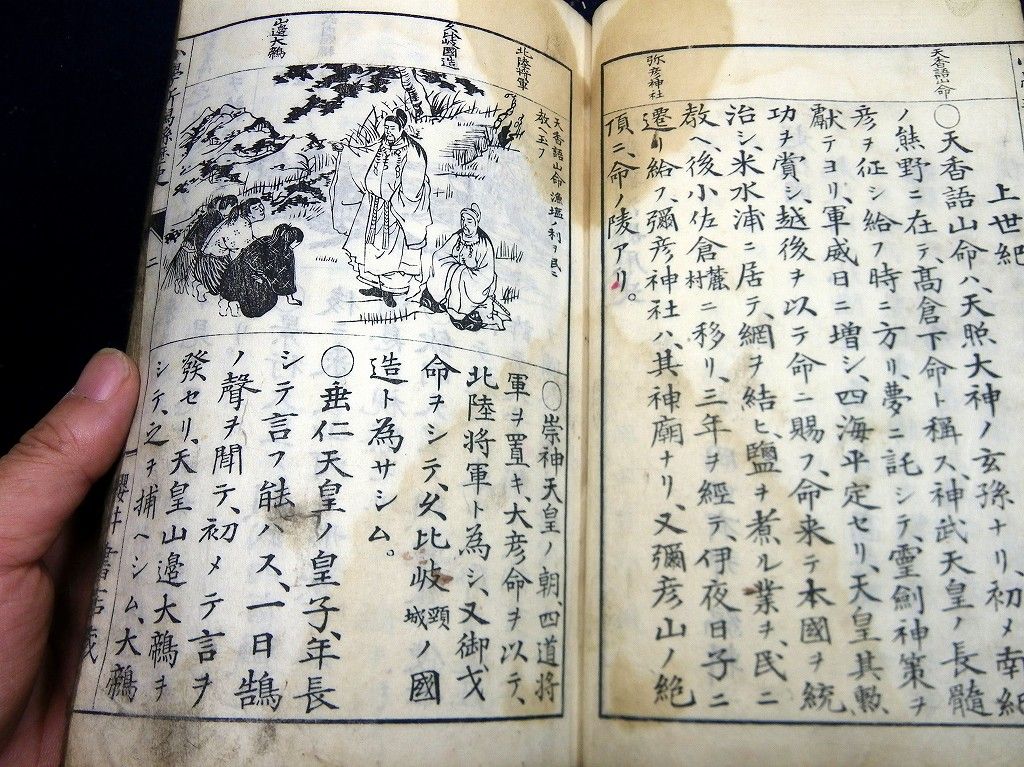 天香語山命
弥彦神社
上世紀
〇天香語山命ハ、天照大神ノ玄孫ナリ、初メ南紀
ノ熊野ニ在テ、高倉下命ト稱ス、神武天皇ノ長髓
彦ヲ征シ給フ時ニ方リ、夢ニ託シテ、靈劍神策ヲ
獻テヨリ、軍威日ニ增シ、四海平定セリ、天皇其勲
功ヲ賞シ、越後ヲ以テ命ニ賜フ、命来テ本國ヲ統
治シ、米水浦ニ居テ、網ヲ結ヒ、鹽ヲ煮ル業ヲ、民ニ
教ヘ、後小佐倉麓村ニ移リ、三年ヲ經テ、伊夜日子ニ
遷リ給フ、彌彦神社ハ、其神廟ナリ、又彌彦山ノ絶
頂ニ、命ノ陵アリ。
北陸将軍
久比岐國造
山邊大鶙
天香語山命漁塩利ヲ民ニ
教ヘ玉フ
〇崇神天皇ノ朝、四道將
軍ヲ置キ、大彦命ヲ以テ、
北陸将軍ト為シ、又御戈
命ヲシテ、久比岐頸城ノ國
造ト為サシム。
〇垂仁天皇ノ皇子、年長
シテ言フ能ハス、一日鵠
ノ聲ヲ聞テ、初メテ言ヲ
發セリ、天皇山邊大鶙ヲ
シテ、之ヲ捕ヘシム、大鶙